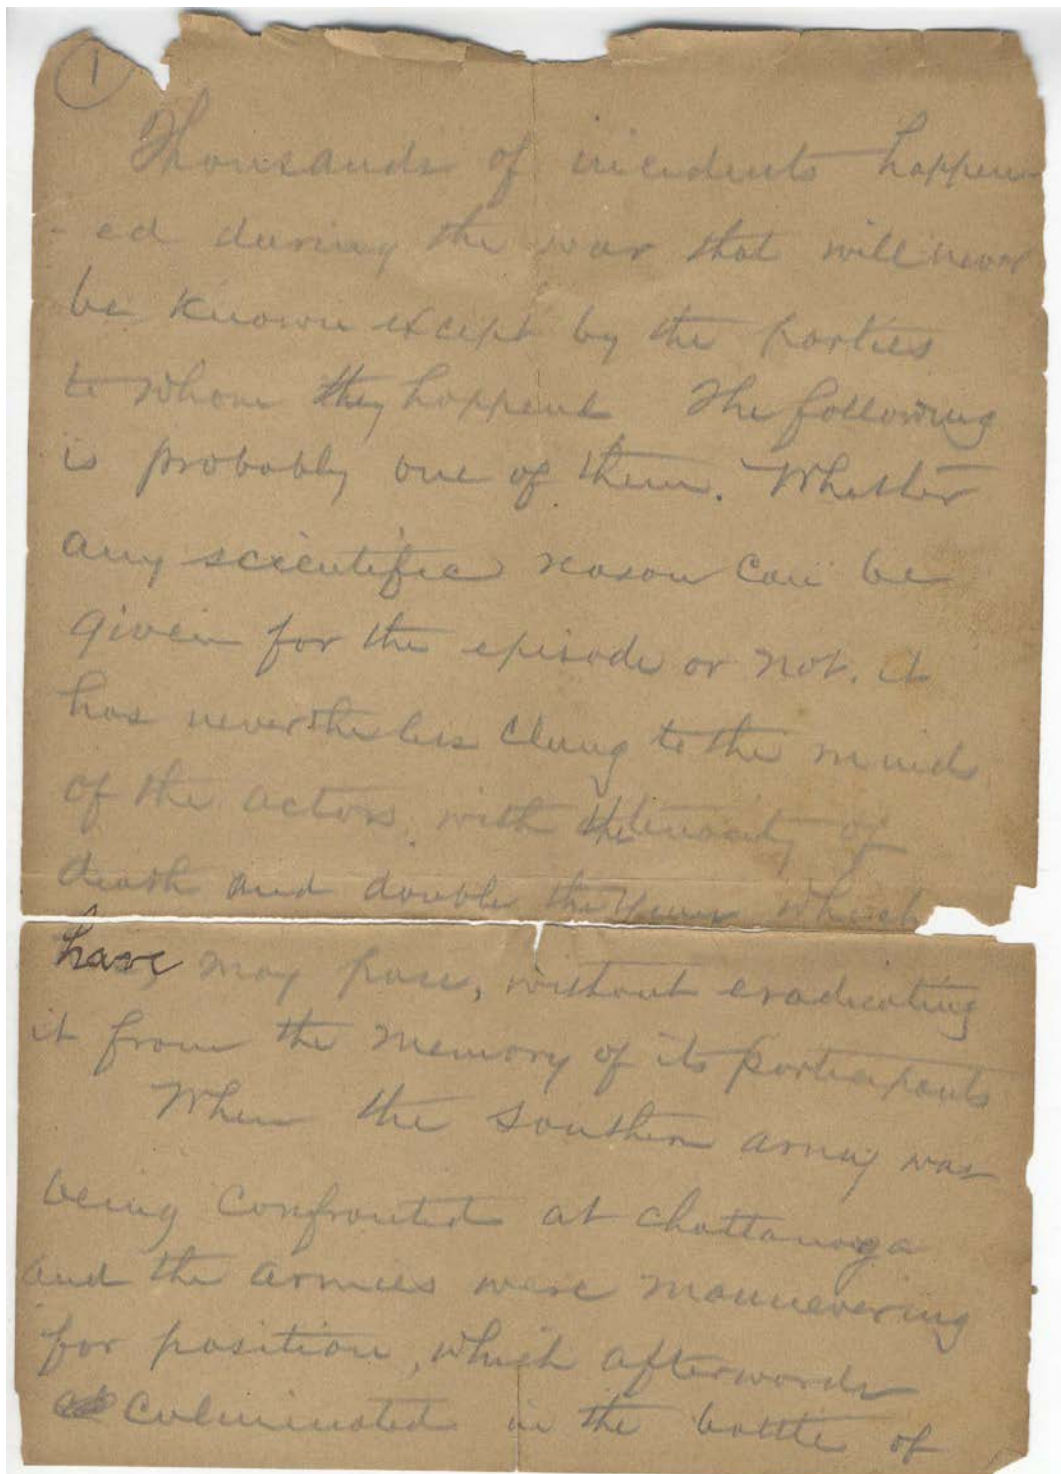 1
Thousands of incidents happen-
-ed during the war that will never
be known except by the parties
to whom they happend The following
is probably one of them. Whether
any scientific reason can be
given for the episode or not. it
has nevertheless clung to the minds
of the actors, with the tenacity of
death and double the years which
have may pass, without eradicating
it from the memory of its participants
When the southern army was
being confronted at chattanooga
and the armies were mannevering
for position, which afterwards
culminated in the battle of